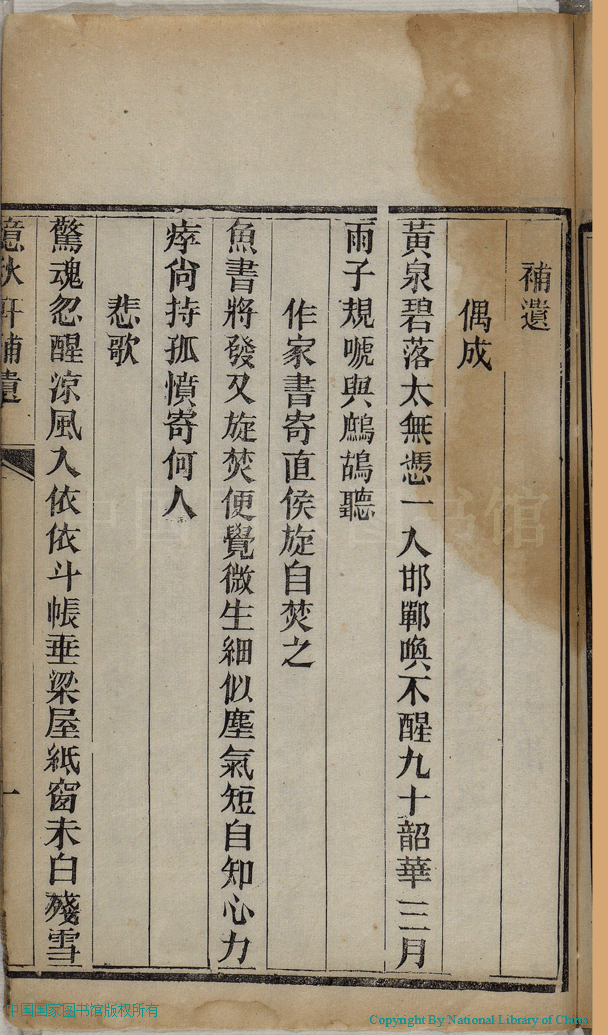 補遺
偶成
黃泉碧落太無憑一入邯鄲喚不醒九十韶華三月
雨子規嗁與鷓鴣聽
作家書寄直侯旋自焚之
魚書將發又旋焚便覺微生細似塵氣短自知心力
瘁尙持孤憤寄何人
悲歌
驚魂忽醒涼風入依依斗帳垂梁屋紙窗未白殘雪
憶秋軒補遺
一
中国国家图书馆版权所有
Copyright By National Library of China